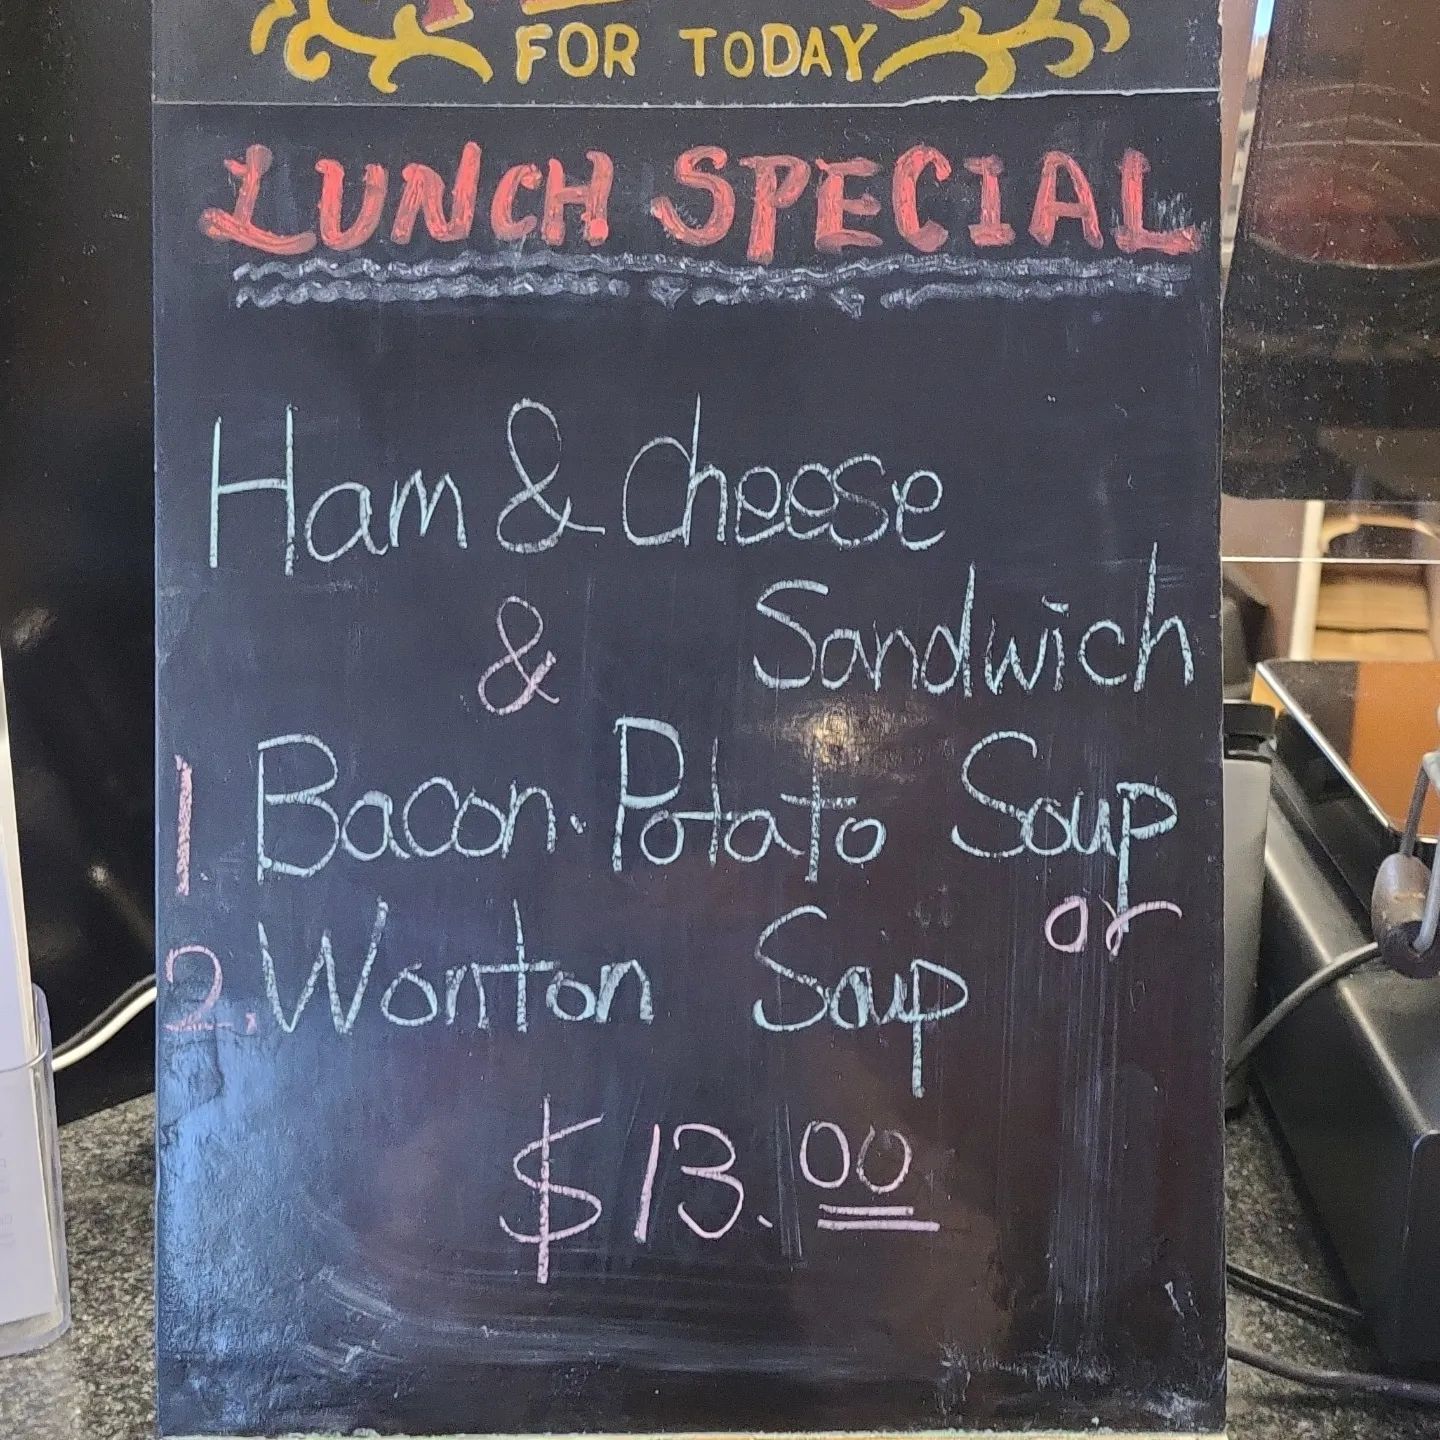 FOR TODAY
LUNCH SPECIAL
Ham & cheese
Sandwich
&
1. Bacon. Potato Soup
or
2. Wonton Soup
$13.00